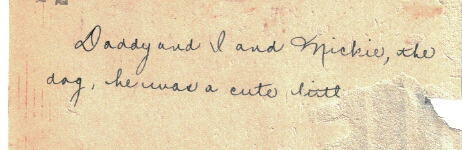 Daddy and I and Mickie, the
dog, he was a cute littl